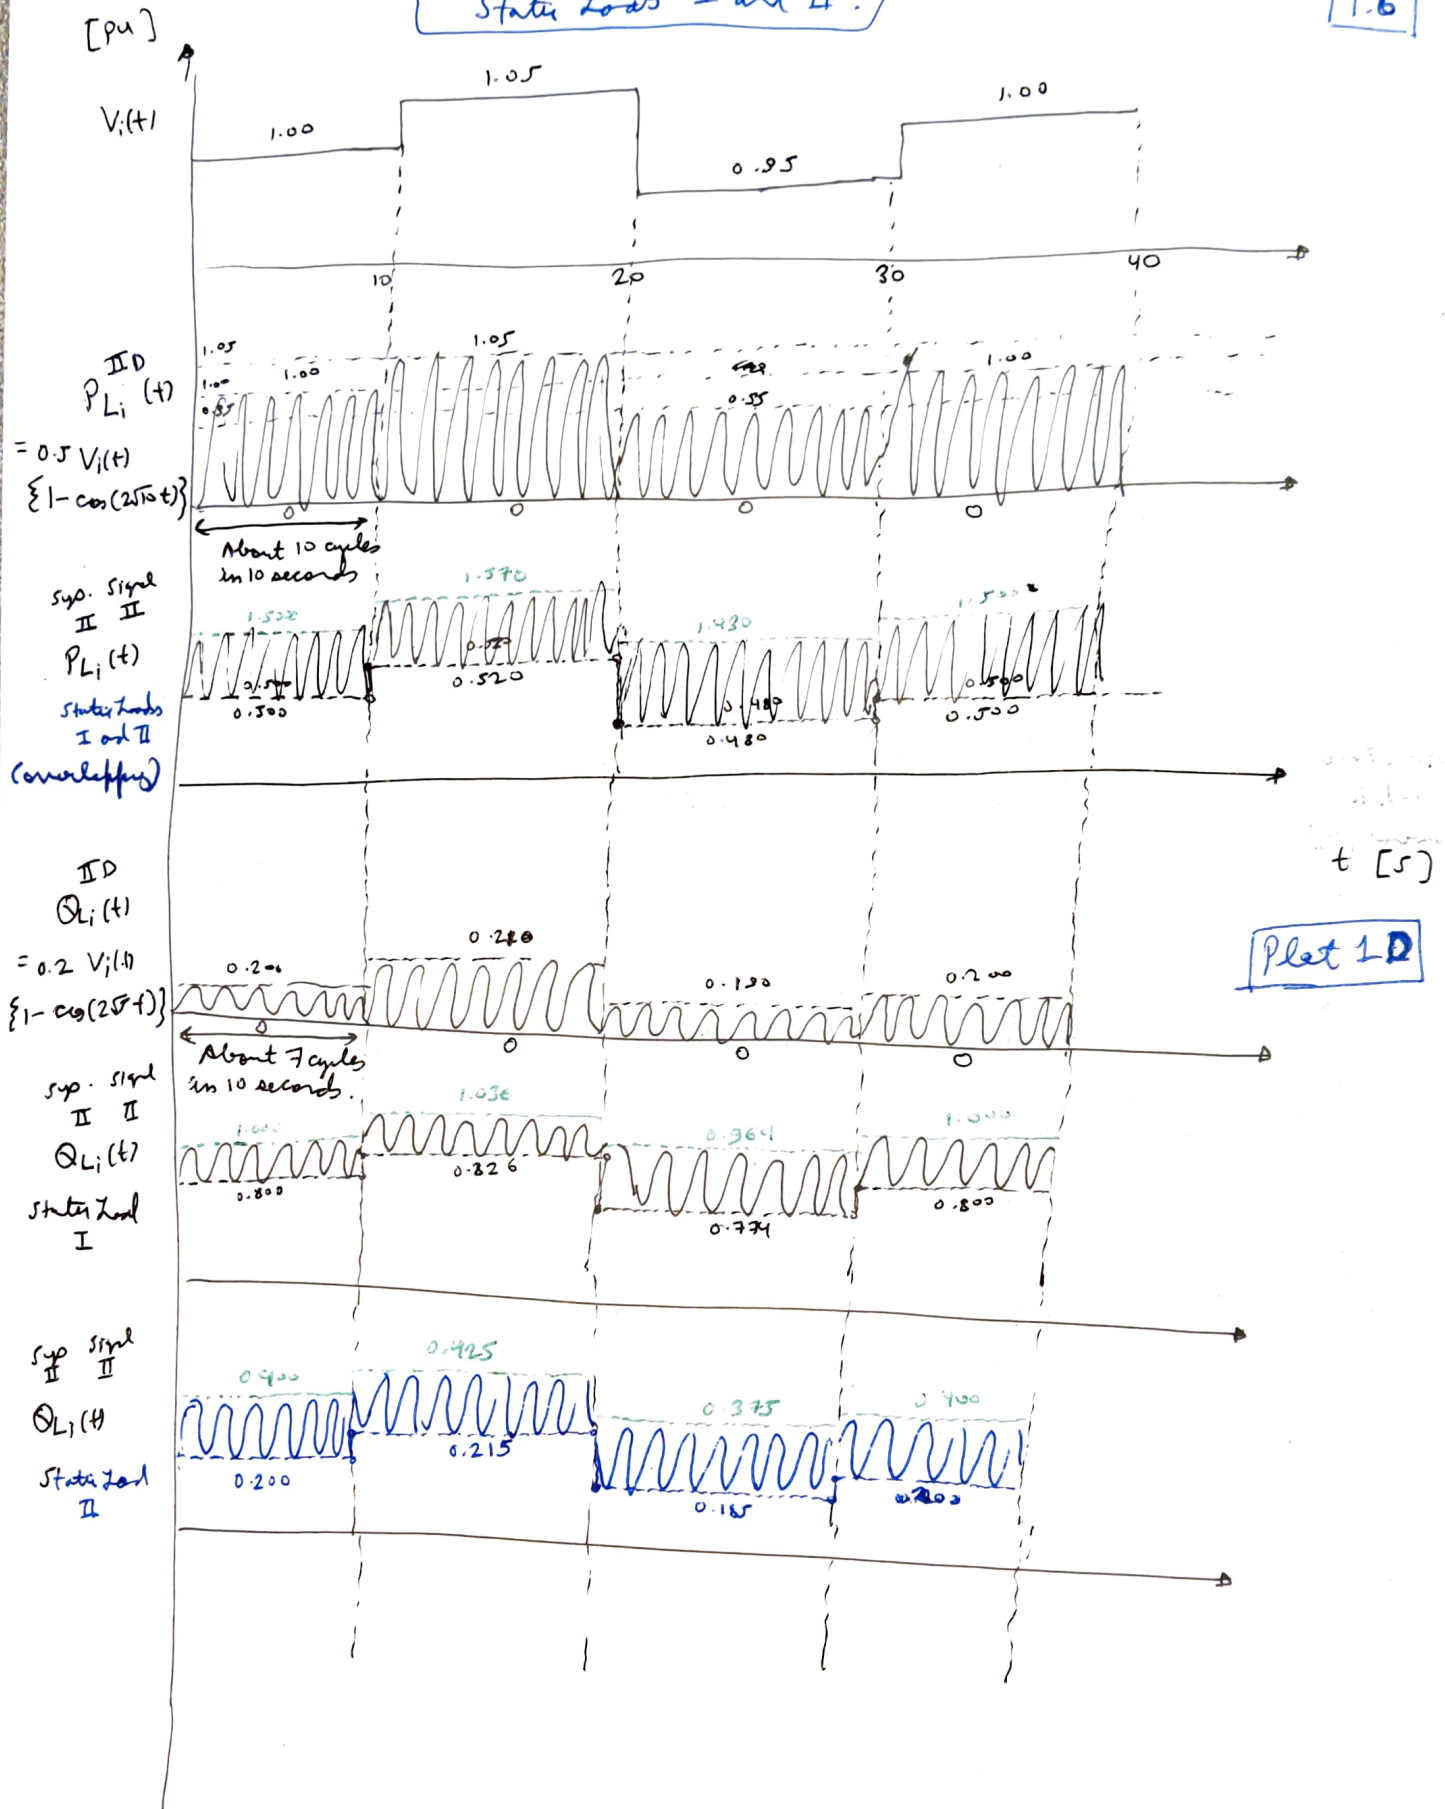 Static Loads I and II.
1.6
[pu]
Vi(t)
1.00
1.05
0.95
1.00
10
20
30
40
II D
PLi (t)
= 0.5 Vi(t)
1.05
1.00
0.95
1.00
1.05
0.95
1.00
0
0
0
0
About 10 cycles
in 10 seconds
Sup. Signal
II II
PLi (t)
Static Loads
I and II
(overlapping)
1.500
1.570
1.430
1.500
0.500
0.500
0.520
0.520
0.480
0.480
0.500
0.500
t [s]
II D
QLi (t)
= 0.2 Vi(t)
0.200
0.210
0.190
0.200
0
0
0
0
About 7 cycles
in 10 seconds.
Plot 1D
Sup. Signal
II II
QLi (t)
Static Load
I
1.000
1.036
0.964
1.000
0.800
0.826
0.774
0.800
Sup Signal
II II
QLi (t)
Static Load
II
0.400
0.425
0.375
0.400
0.200
0.215
0.185
0.200